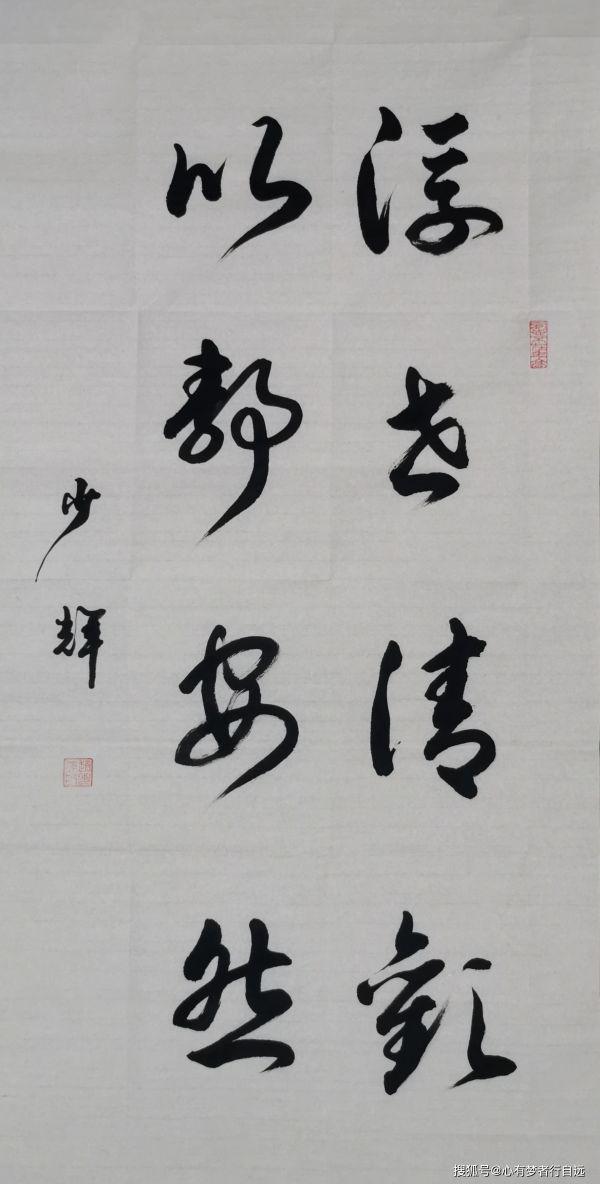 浮世清歡
以静安然
少輝
搜狐号@心有梦者行自远